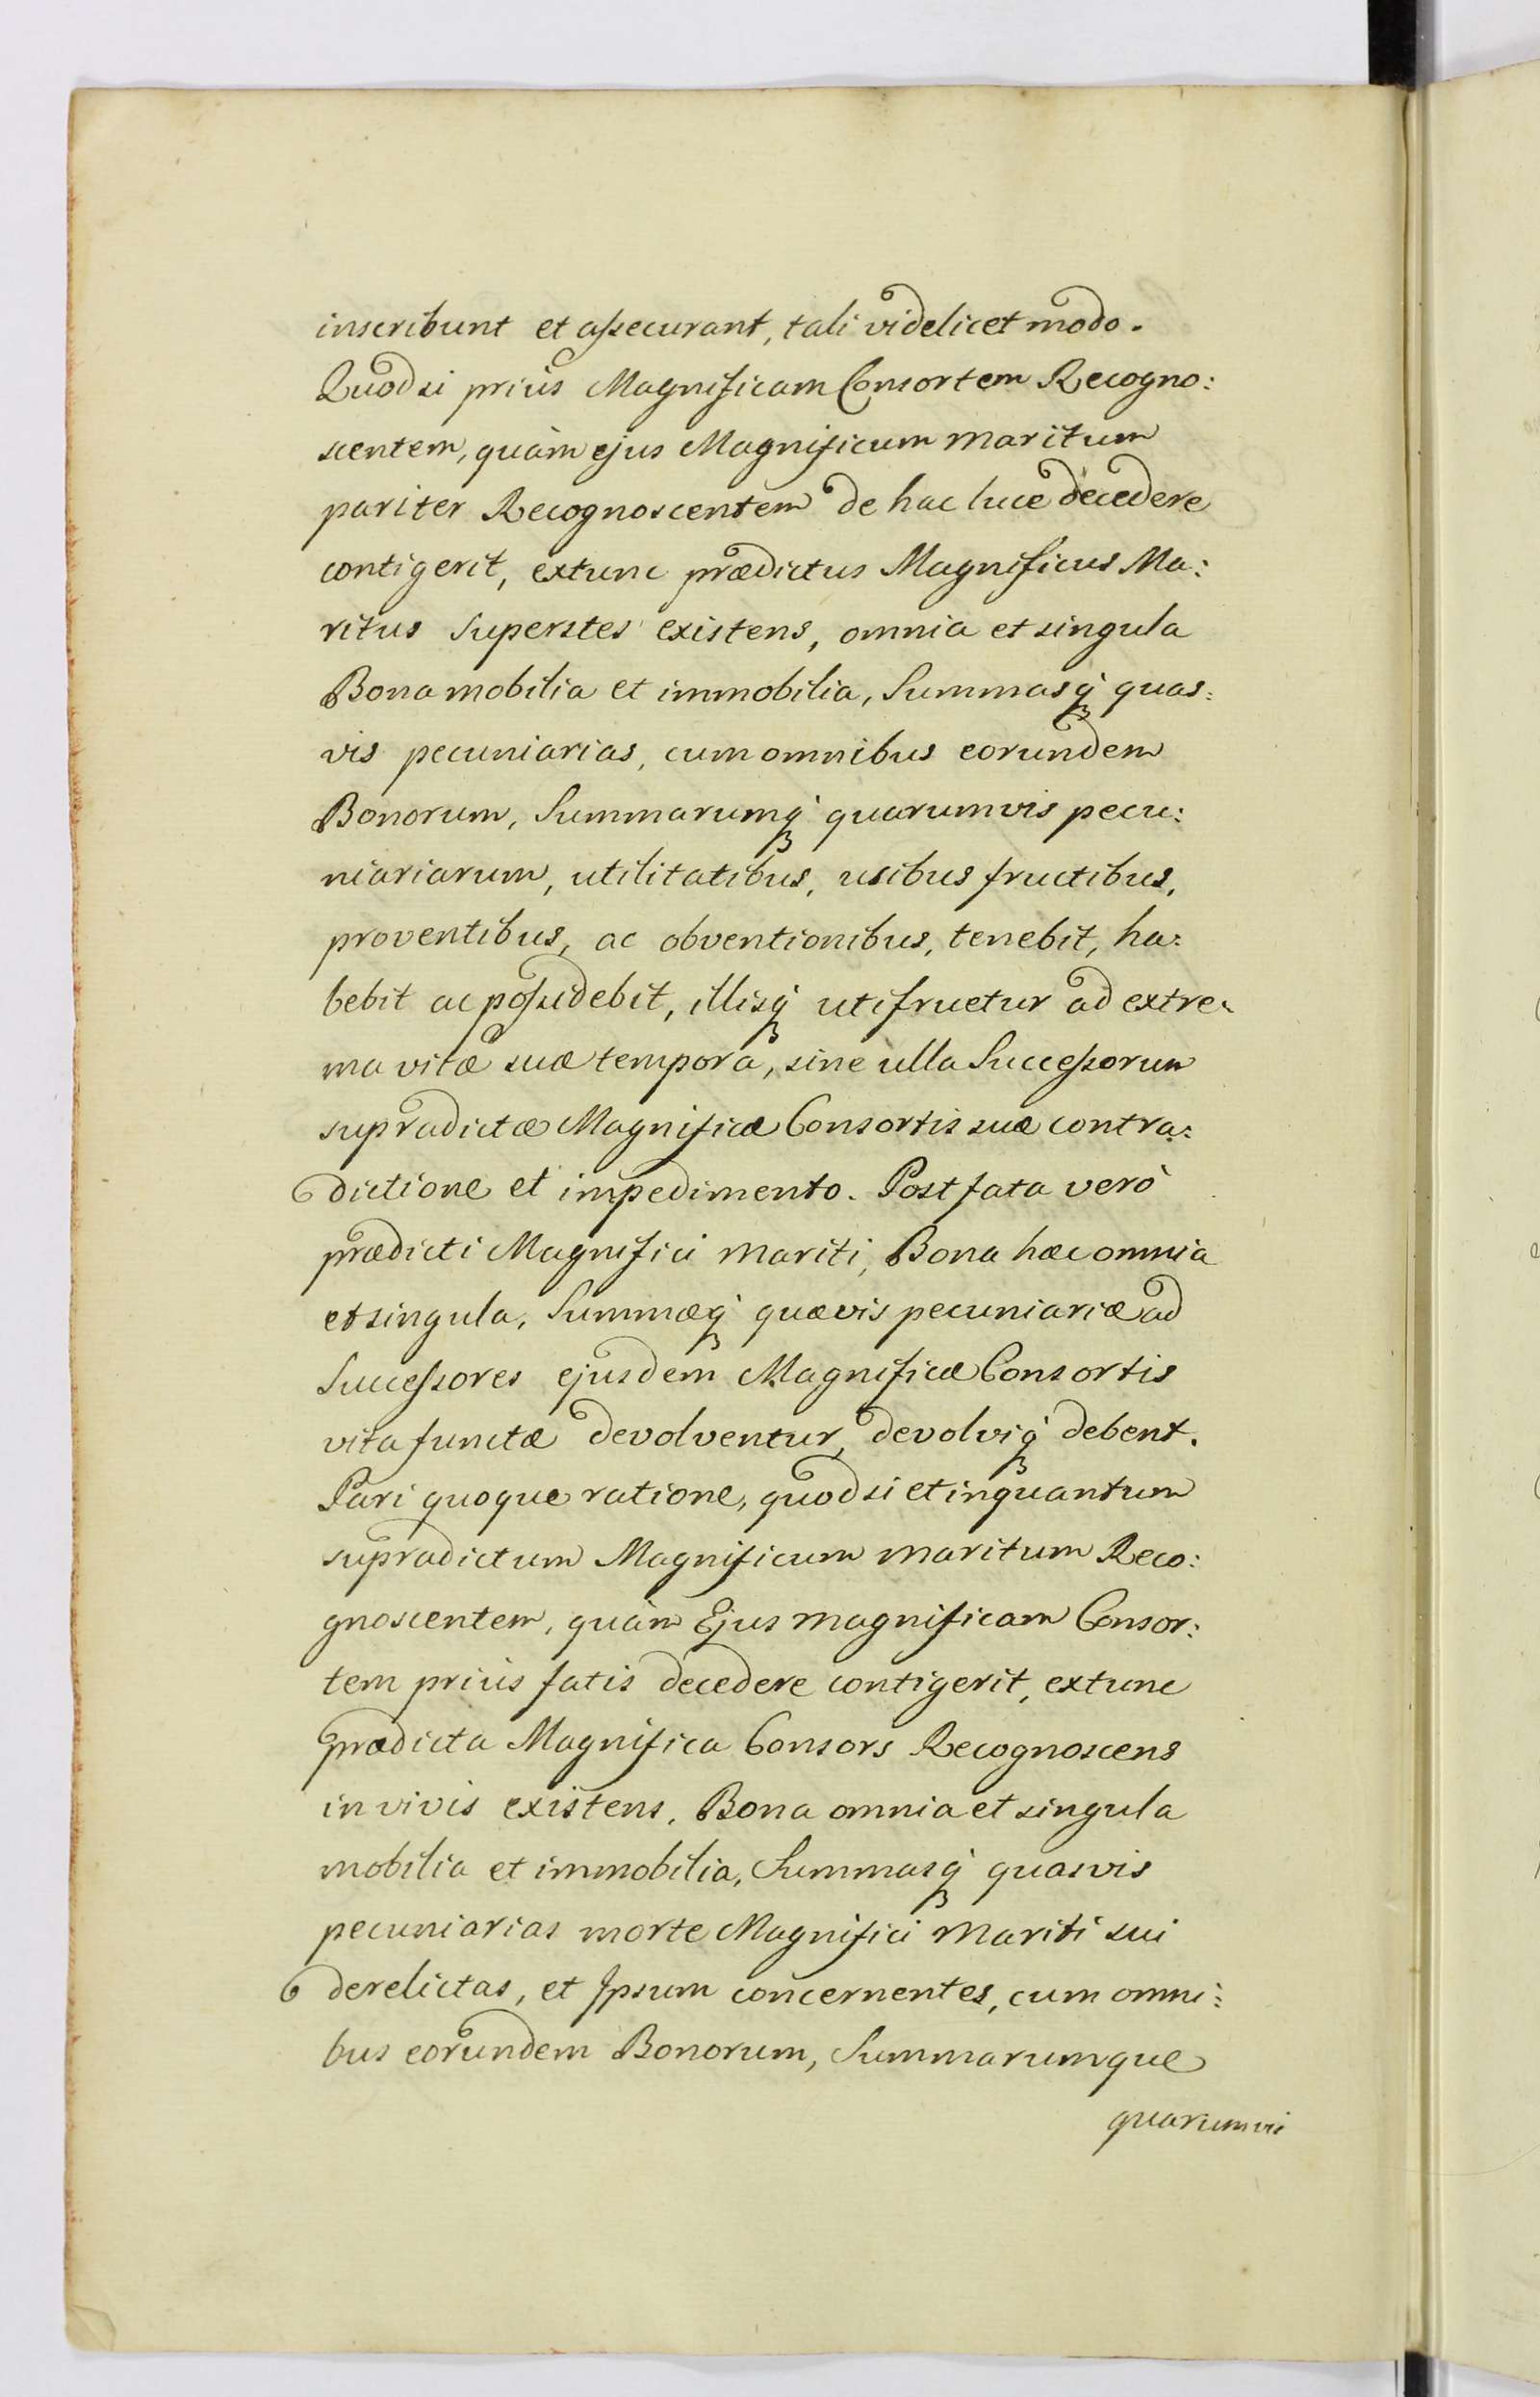 inscribunt et assecurant, tali videlicet modo.
Quodsi priùs Magnificam Consortem Recogno:
scentem, quàm ejus Magnificum Maritum
pariter Recognoscentem de hac luce decedere
contigerit, extunc prædictus Magnificus Ma:
ritus Superstes existens, omnia et singula
Bona mobilia et immobilia, Summasqꝫ quas:
vis pecuniarias, cum omnibus eorundem
Bonorum, Summarumqꝫ quarumvis pecu:
niariarum, utilitatibus, usibus fructibus,
proventibus, ac obventionibus, tenebit, ha:
bebit ac possidebit, illisqꝫ utifruetur ad extre:
ma vitæ suæ tempora, sine ulla Successorum
supradictæ Magnificæ Consortis suæ contra:
dictione et impedimento. Post fata verò
prædicti Magnifici Mariti, Bona hæc omnia
et singula, Summæqꝫ quævis pecuniariæ ad
Successores ejusdem Magnificæ Consortis
vita functæ devolventur, devolviqꝫ debent.
Pari quoque ratione, quodsi et inquantum
supradictum Magnificum Maritum Reco:
gnoscentem, quàm Ejus Magnificam Consor:
tem priùs fatis decedere contigerit, extunc
prædicta Magnifica Consors Recognoscens
in vivis existens, Bona omnia et singula
mobilia et immobilia, Summasqꝫ quasvis
pecuniarias morte Magnifici Mariti sui
derelictas, et Ipsum concernentes, cum omni:
bus eorundem Bonorum, Summarumque
quarumvis